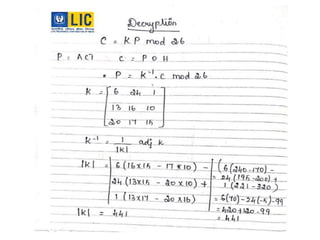 LIC
Decryption
C = KP mod 26
P = ACT C = POH
• P = K⁻¹ · C mod 26
K = [ 6 24 1
13 16 10
20 17 15 ]
K⁻¹ = 1/|K| adj K
|K| = | 6(16×15 - 17×10) -
24(13×15 - 20×10) +
1(13×17 - 20×16) |
= | 6(240-170) -
24(195-200) +
1(221-320)
= 6(70) - 24(-5) - 99
= 420 + 120 - 99
= 441
|K| = 441